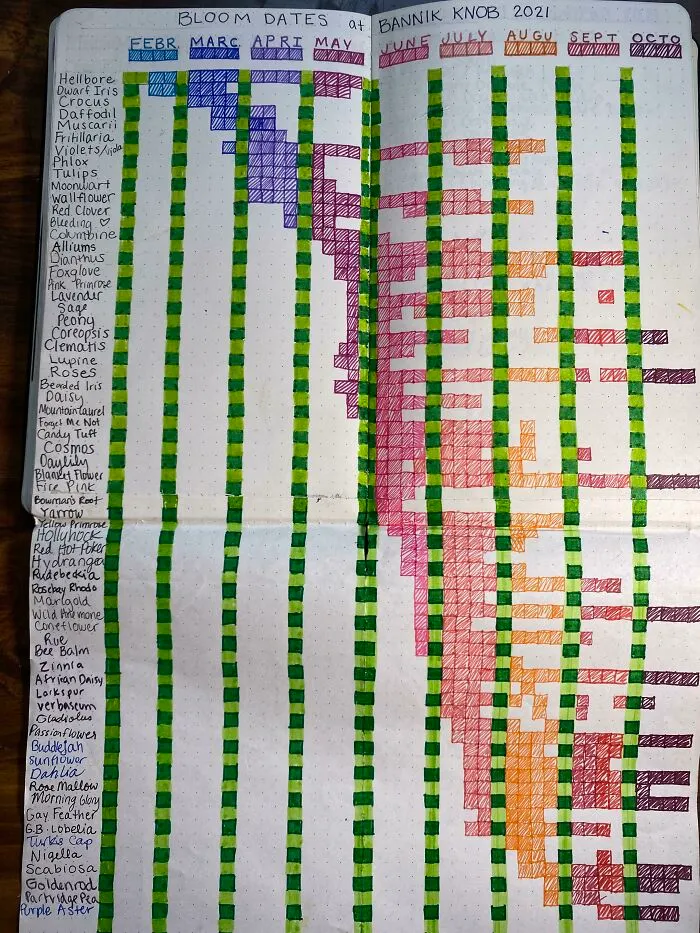 BLOOM DATES at BANNIK KNOB 2021
FEBR. MARC APRI MAY JUNE JULY AUGU SEPT OCTO
Hellbore
Dwarf Iris
Crocus
Daffodil
Muscarii
Fritillaria
Violets/viola
Phlox
Tulips
Moonwart
Wallflower
Red Clover
Bleeding ♡
Columbine
Alliums
Dianthus
Foxglove
Pink Primrose
Lavender
Sage
Peony
Coreopsis
Clematis
Lupine
Roses
Bearded Iris
Daisy
Mountain Laurel
Forget Me Not
Candy Tuft
Cosmos
Daylily
Blanket Flower
Fire Pink
Bowman's Root
Yarrow
Yellow Primrose
Hollyhock
Red Hot Poker
Hydrangea
Rudebeckia
Rosebay Rhodo
Marigold
Wild Anemone
Coneflower
Rue
Bee Balm
Zinnia
African Daisy
Larkspur
verbascum
Gladiolus
Passionflower
Buddlejah
Sunflower
Dahlia
Rose Mallow
Morning Glory
Gay Feather
G.B. Lobelia
Turk's Cap
Nigella
Scabiosa
Goldenrod
Partridge Pea
Purple Aster